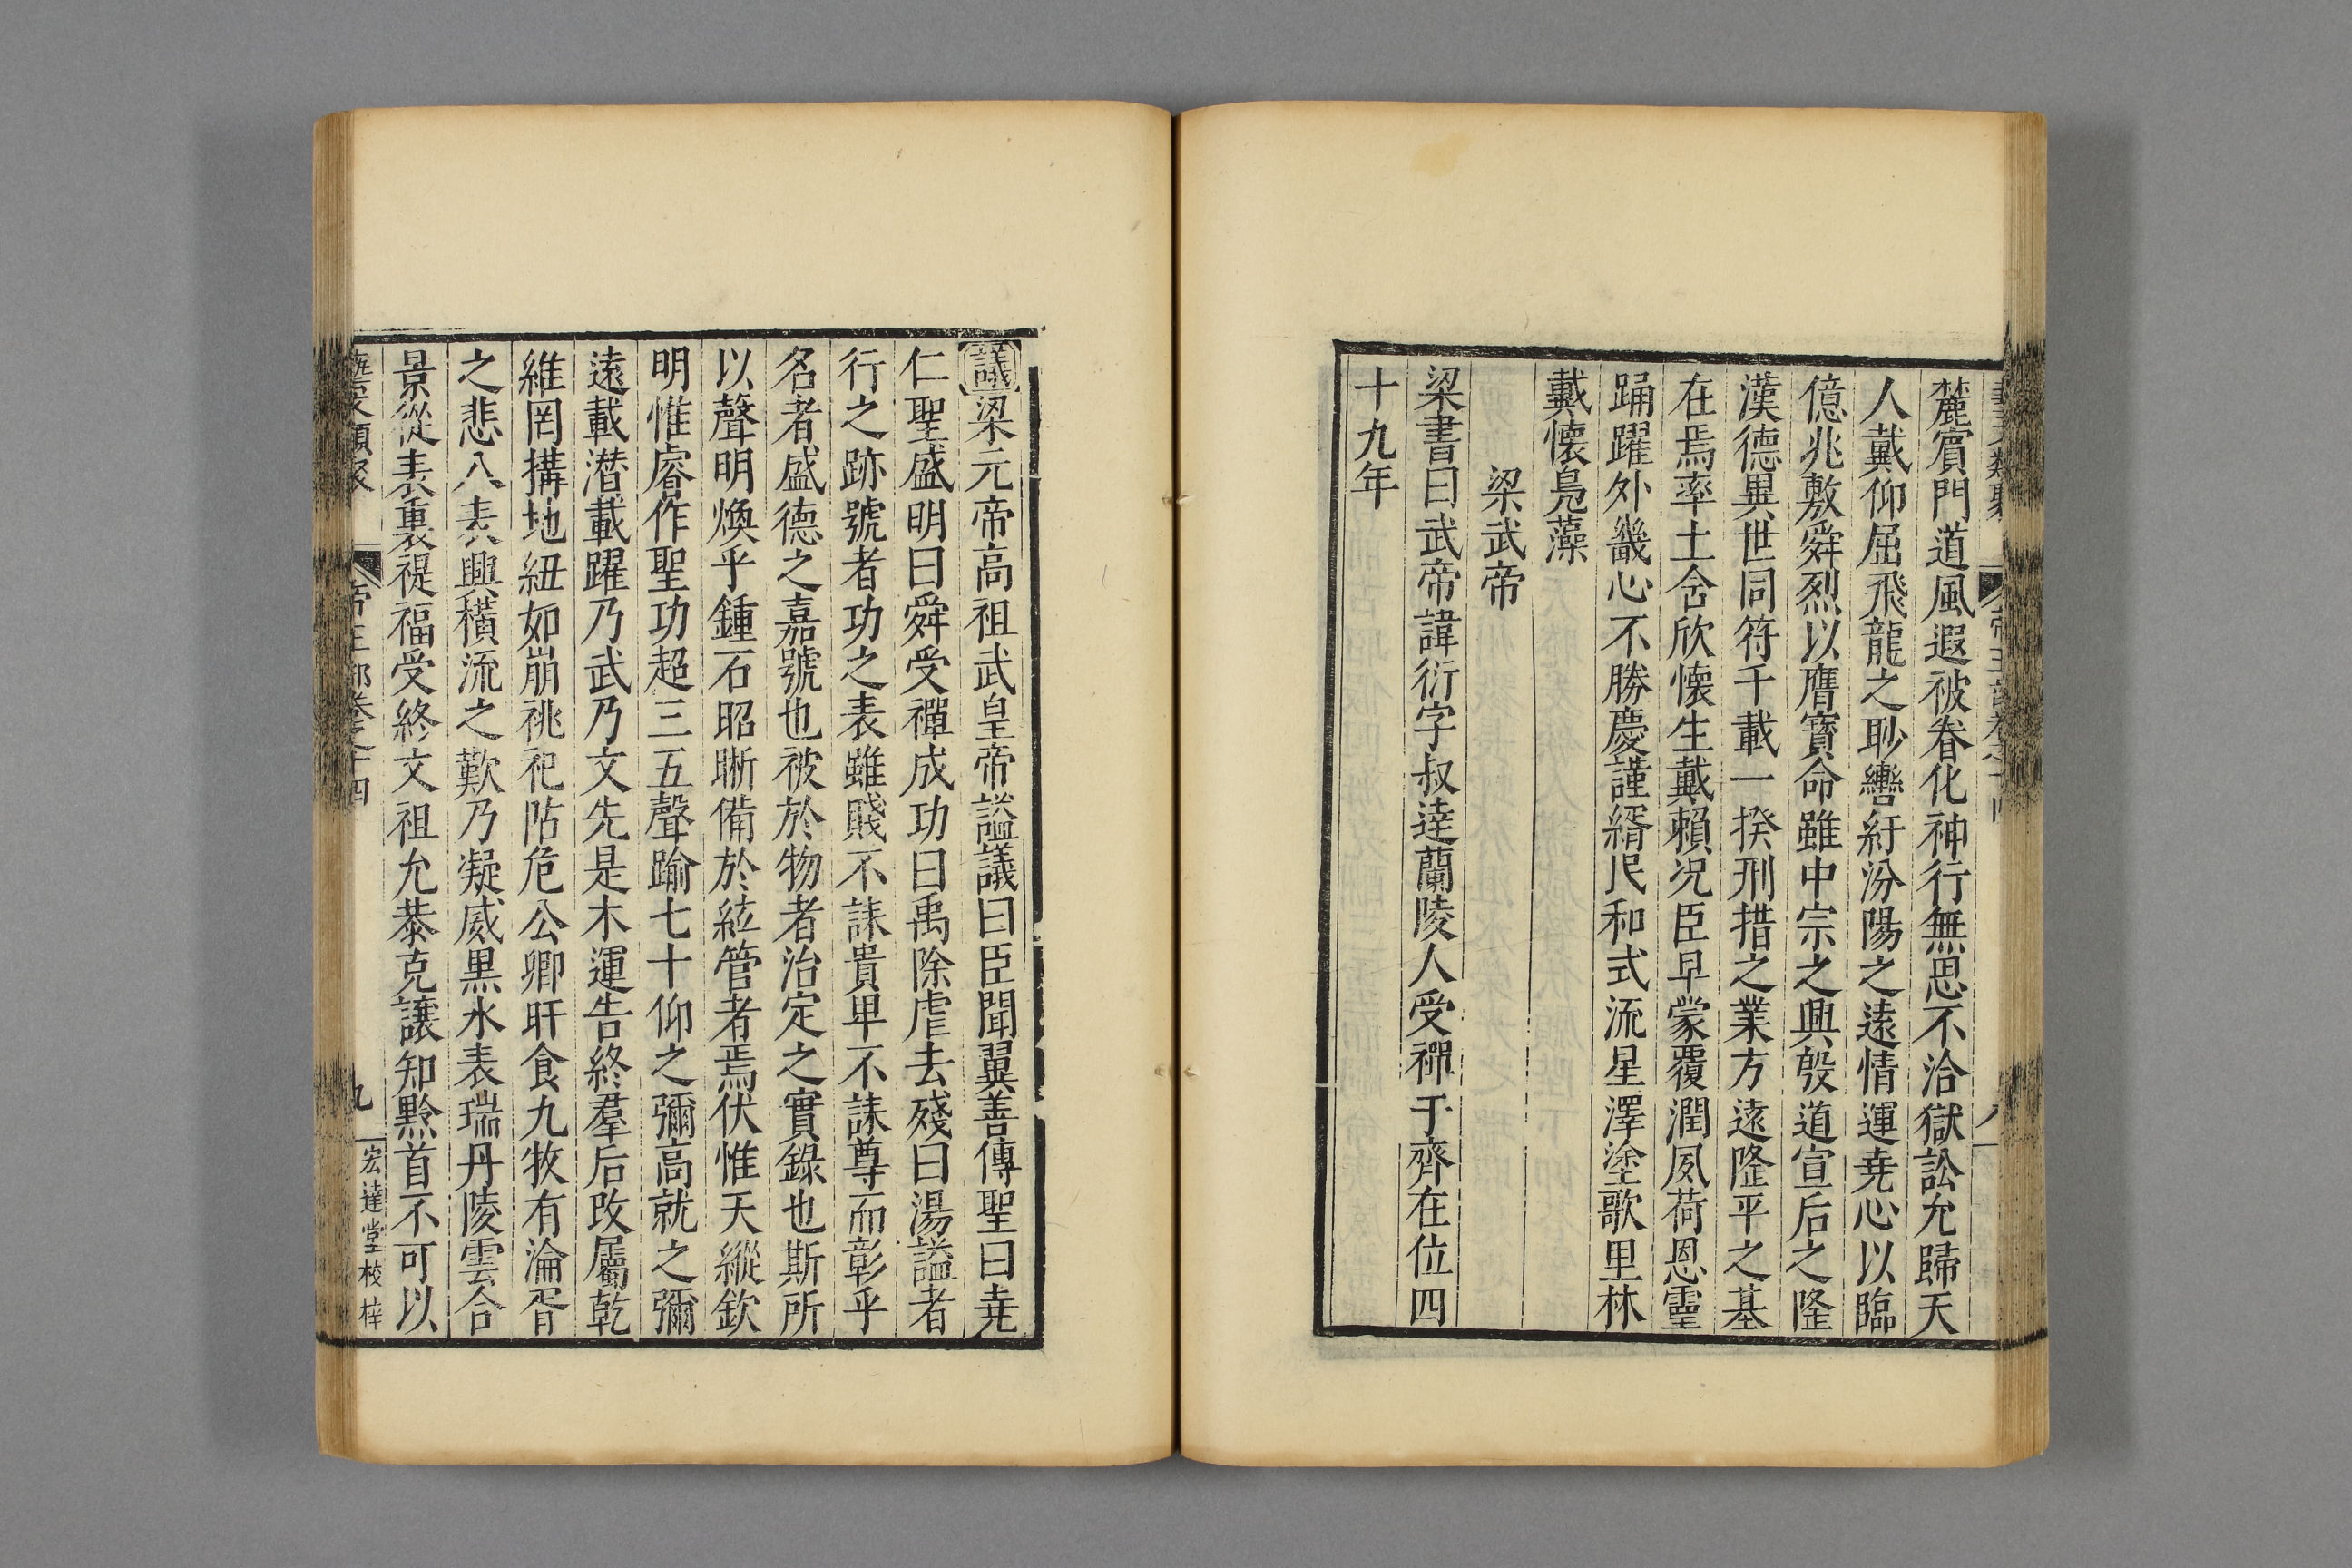 麓賓門道風遐被眷化神行無思不洽獄訟允歸天
人戴仰屈飛龍之眇轡紆汾陽之遠情運堯心以臨
億兆敷舜烈以膺寶命雖中宗之興殷道宣后之隆
漢德異世同符千載一揆刑措之業方遠隆平之基
在焉率土含欣懷生戴賴況臣早蒙覆潤夙荷恩靈
踊躍外畿心不勝慶謹緝民和式流星澤塗歌里抃
戴懷鳧藻
梁武帝
梁書曰武帝諱衍字叔達蘭陵人受禪于齊在位四
十九年
議梁元帝高祖武皇帝謚議曰臣聞翼善傳聖曰堯
仁聖盛明曰舜受禪成功曰禹除虐去殘曰湯謚者
行之跡號者功之表雖賤不誄貴卑不誄尊而彰乎
名者盛德之嘉號也被於物者治定之實錄也斯所
以聲明煥乎鍾石昭晣備於絃管者焉伏惟天縱欽
明惟睿作聖功超三五聲踰七十仰之彌高就之彌
遠載潛載躍乃武乃文先是木運告終羣后改屬乾
維罔搆地紐如崩祧祀阽危公卿旰食九牧有淪胥
之悲八表興橫流之歎乃凝威黑水表瑞丹陵雲合
景從表裏禔福受終文祖允恭克讓知黔首不可以
九
宏達堂校梓